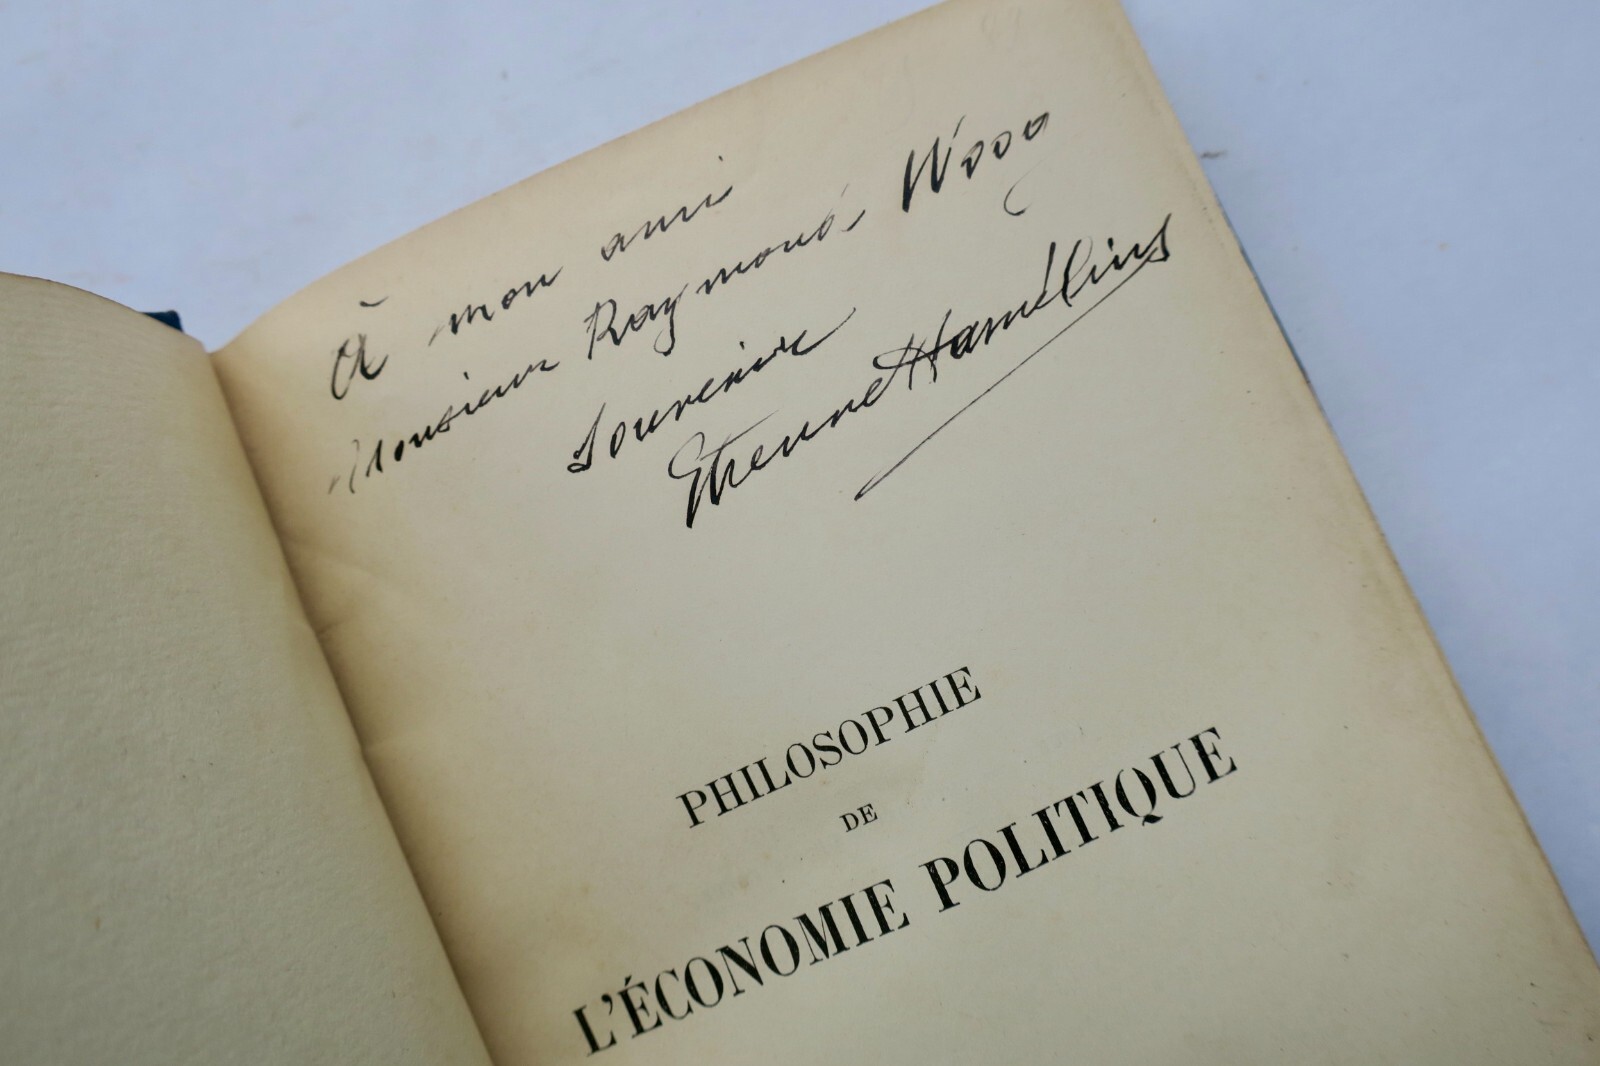 À mon ami
Monsieur Raymond Woog
Souvenir
Etienne Hamélins
PHILOSOPHIE
DE
L'ÉCONOMIE POLITIQUE